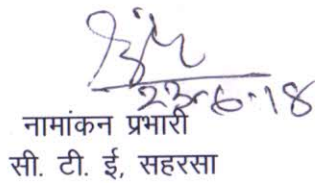 23-6-18
नामांकन प्रभारी
सी. टी. ई, सहरसा